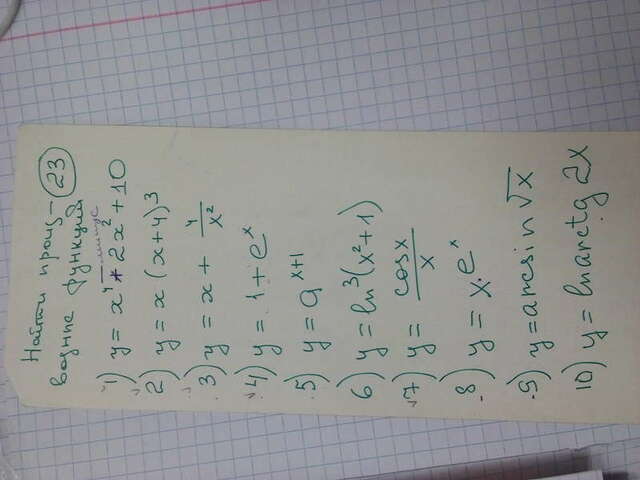 Найти произ- 23
водные функций
1) y = x⁴ - 2x² + 10
минус
2) y = x(x+4)³
3) y = x + 4/x²
4) y = 1 + eˣ
5) y = 9ˣ⁺¹
6) y = ln³(x²+1)
7) y = cosx/x
8) y = x·eˣ
9) y = arcsin √x
10) y = ln arctg 2x